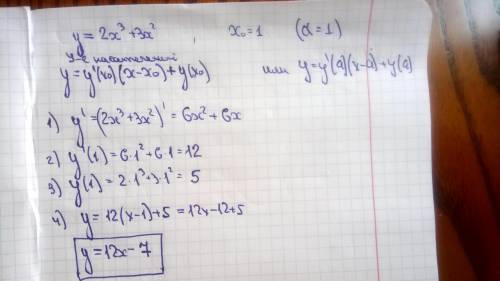 y = 2x³+3x², x₀ = 1 (a = 1)
у-е касательной
y = y'(x₀)(x-x₀)+y(x₀) или y = y'(a)(x-a)+y(a)
1) y' = (2x³+3x²)' = 6x²+6x
2) y'(1) = 6·1²+6·1 = 12
3) y(1) = 2·1³+3·1² = 5
4) y = 12(x-1)+5 = 12x-12+5
y = 12x-7